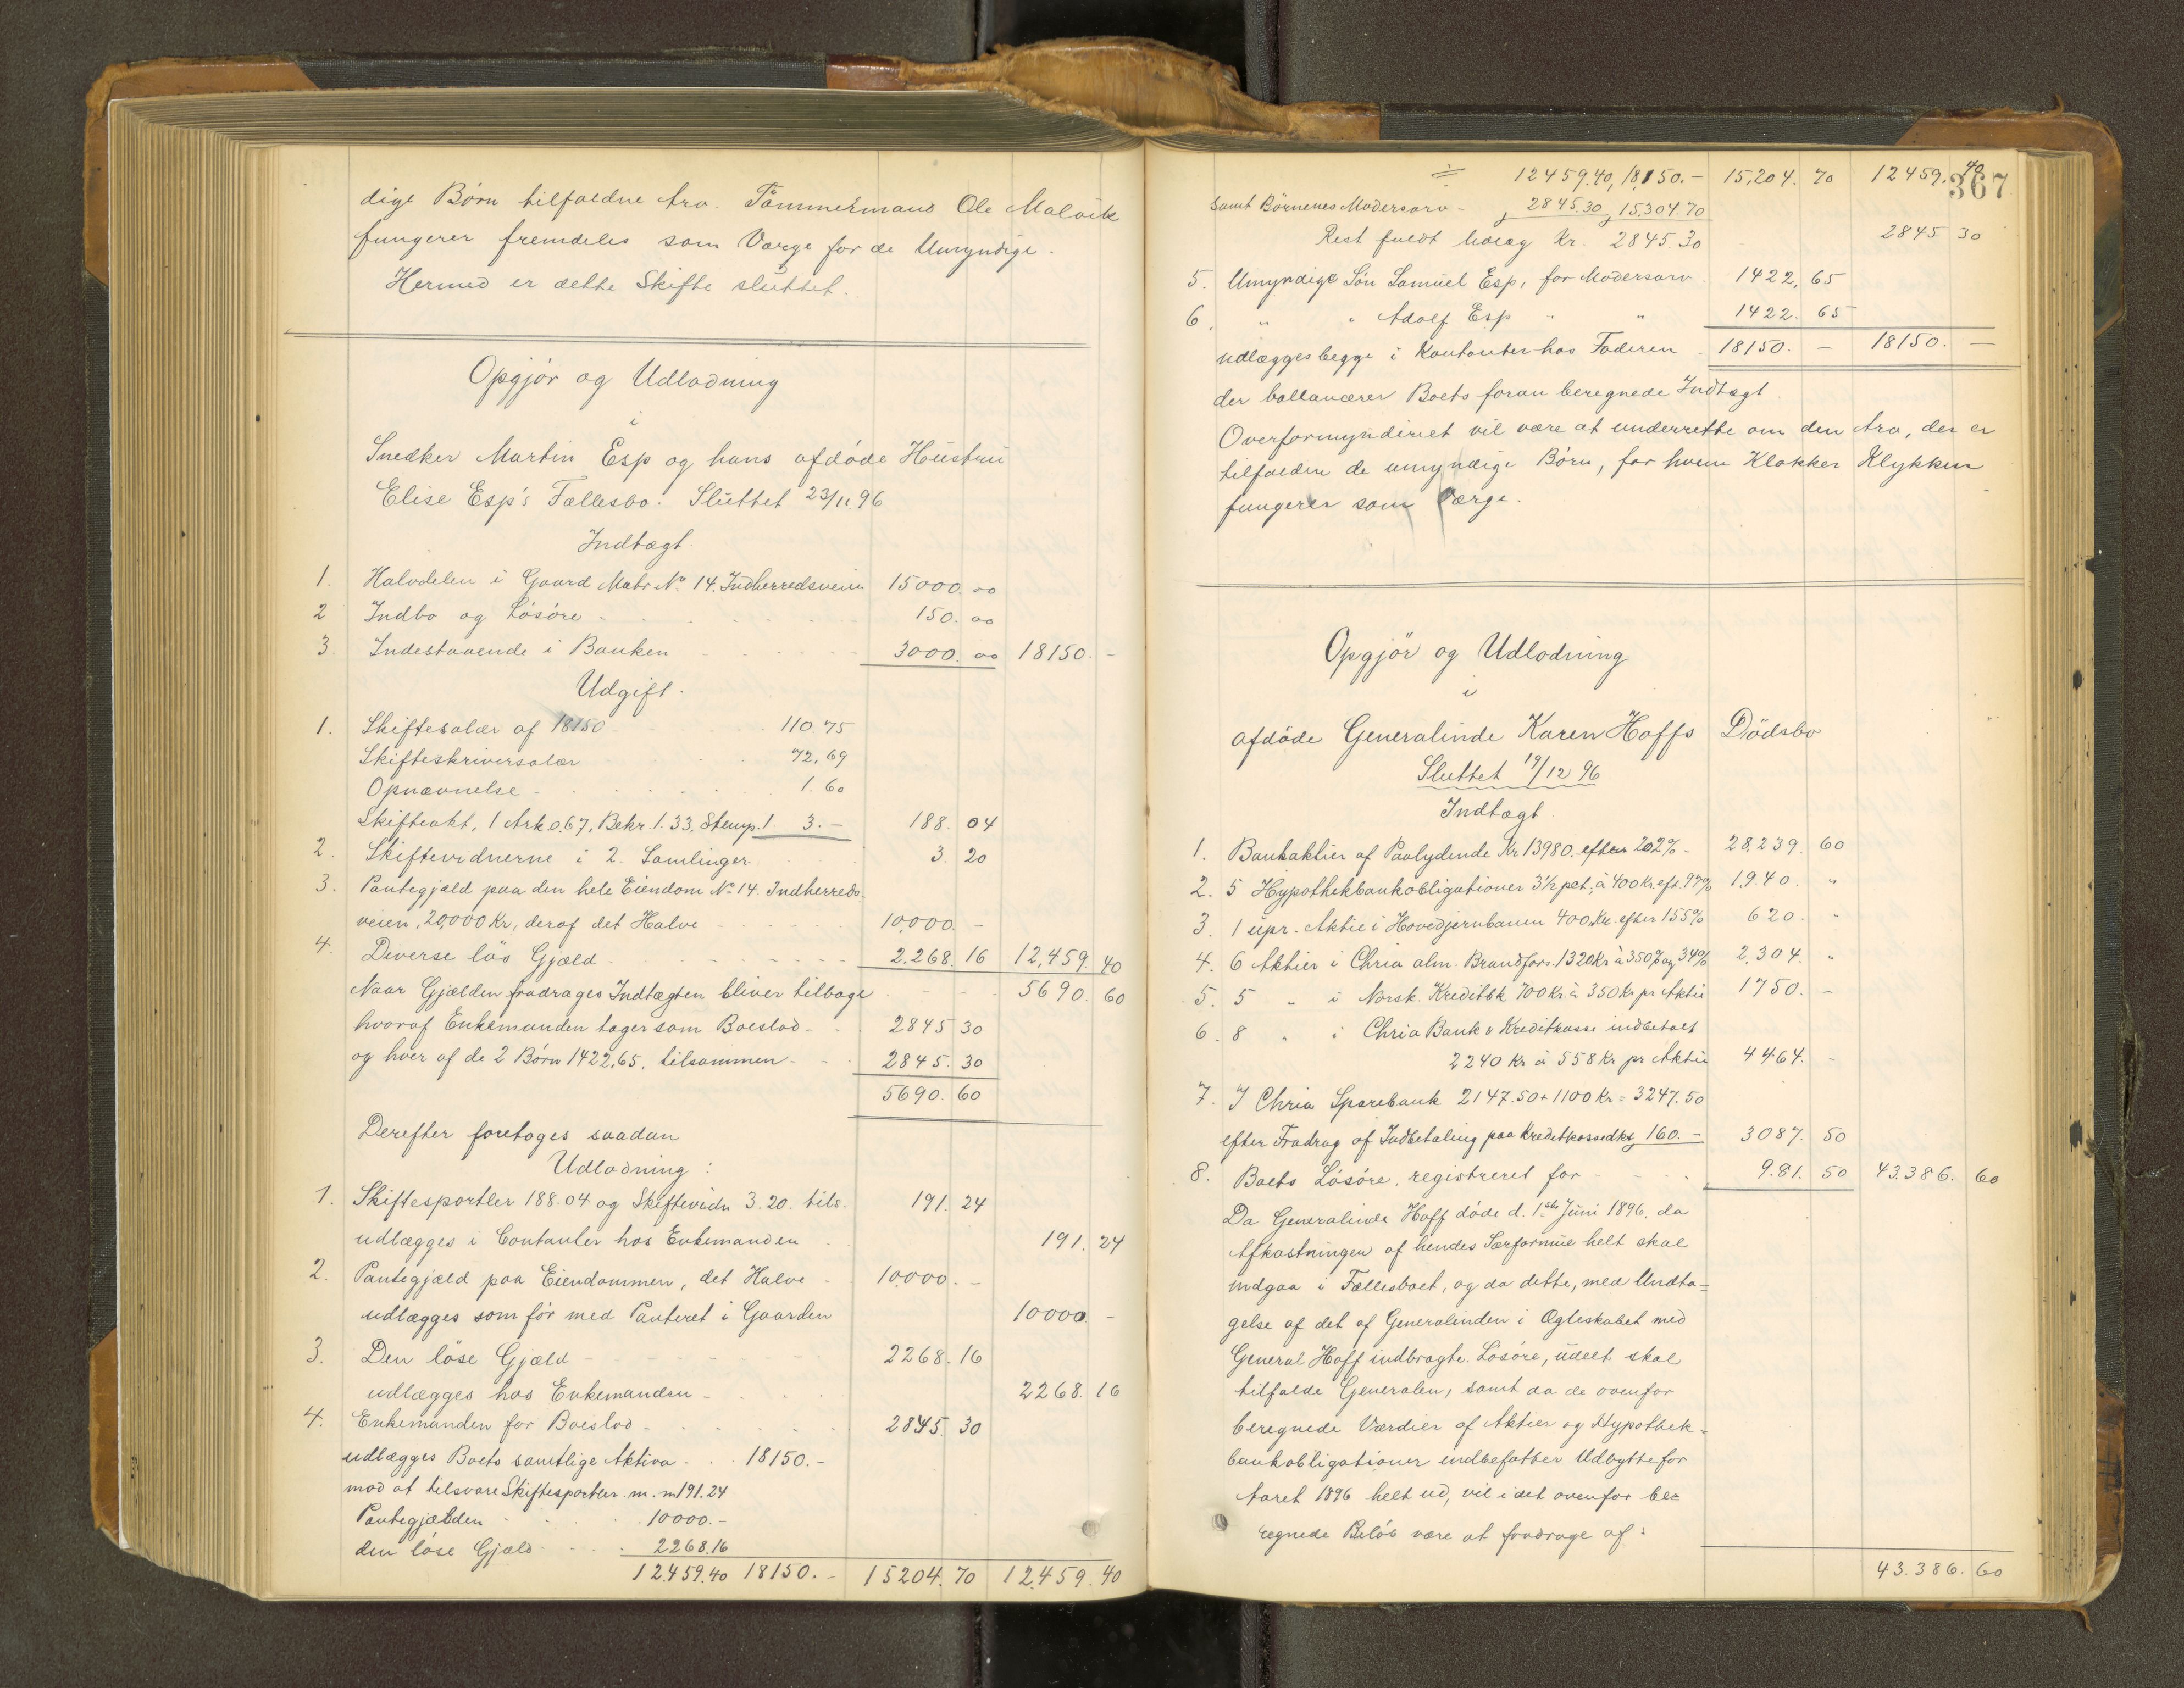 dige Børn tilfaldne Arv. Tømmermand Ole Malvik
fungerer fremdeles som Værge for de Umyndige.
Hermed er dette Skifte sluttet.
Opgjør og Udlodning
i
Snedker Martin Esp og hans afdøde Hustru
Elise Esp's Fællesbo. Sluttet 23/11 96
Indtægt
1. Halvdelen i Gaard Matr. No 14. Indherredsveien 15000. 00
2 Indbo og Løsøre - 150. 00
3. Indestaaende i Banken 3000. 00 18150. -
Udgift.
1. Skiftesalær af 18150 110.75
Skifteskriversalær 72,69
Opnævnelse - 1.60
Skifteakt, 1 Ark 0,67, Bekr. 1.33, Stemp. 1. 3.- 188. 04
2. Skiftevidnerne i 2. Samlinger 3. 20
3. Pantegjæld paa den hele Eiendom No 14. Indherreds-
veien, 20,000 Kr, deraf det Halve 10,000. -
4. Diverse løs Gjæld 2.268. 16 12,459. 40
Naar Gjælden fradrages Indtægten bliver tilbage 5690. 60
hvoraf Enkemanden tager som Boeslod - 2845 30
og hver af de 2 Børn 1422,65, tilsammen - 2845. 30
5690. 60
Derefter foretages saadan
Udlodning:
1. Skiftesportler 188.04 og Skiftevidn 3.20. tils. 191. 24
udlægges i Contanter hos Enkemanden 191. 24
2. Pantegjæld paa Eiendommen, det Halve - 10.000. -
udlægges som før med Panteret i Gaarden 10000 -
3. Den løse Gjæld - 2268. 16
udlægges hos Enkemanden - 2268. 16
4. Enkemanden for Boeslod - 2845. 30
udlægges Boets samtlige Aktiva - 18150.-
mod at tilsvare Skiftesportler m. m 191.24
Pantegjælden 10000.-
den løse Gjæld 2268.16
12.459.40 18150. - 15204. 70 12.459. 40
367
÷ 12459.40, 18,150.- 15,204. 70 12459. 40
samt Børnenes Mødrearv - 2845.30, 15,304.70
Rest fuldt udlæg Kr. 2845.30 2845 30
5. Umyndige Søn Samuel Esp, for Mødrearv 1422, 65
6. " " Adolf Esp " " 1422. 65
udlægges begge i Kontanter hos Faderen 18150. - 18150. -
der ballancerer Boets foran beregnede Indtægt.
Overformynderiet vil være at underrette om den Arv, der er
tilfalden de umyndige Børn, for hvem Klokker Klykken
fungerer som Værge.
Opgjør og Udlodning
i
afdøde Generalinde Karen Hoffs Dødsbo
Sluttet 19/12 96
Indtægt
1. Bankaktier af Paalydende Kr 13980. efter 202% - 28,239. 60
2. 5 Hypothekbankobligationer 3½ pct, à 400 Kr. eft. 97% 1,9.40. "
3. 1 upr. Aktie i Hovedjernbanen 400 Kr. efter 155% 620. "
4. 6 Aktier i Chria alm. Brandfors. 1320 Kr à 350% og 34% 2,304. "
5. 5 " i Norsk. Kreditbk 700 Kr à 350 Kr pr Aktie 1750. -
6. 8 " i Chria Bank & Kreditkasse indbetalt
2240 Kr à 558 Kr pr Aktie 4464. -
7. I Chria Sparebank 2147.50 + 1100 Kr = 3247.50
efter Fradrag af Indbetaling paa Kreditkassedkt 160. - 3087. 50
8. Boets Løsøre, registreret for 9.81. 50 43.386. 60
Da Generalinde Hoff døde d. 1ste Juni 1896, da
Afkastningen af hendes Særformue helt skal
indgaa i Fællesboet, og da dette, med Undta-
gelse af det af Generalinden i Ægteskabet med
General Hoff indbragte Løsøre, udelt skal
tilfalde Generalen, samt da de ovenfor
beregnede Værdier af Aktier og Hypothek-
bankobligationer indbefatter Udbytte for
Aaret 1896 helt ud, vil i det ovenfor be-
regnede Beløb være at fradrage af:
43.386. 60